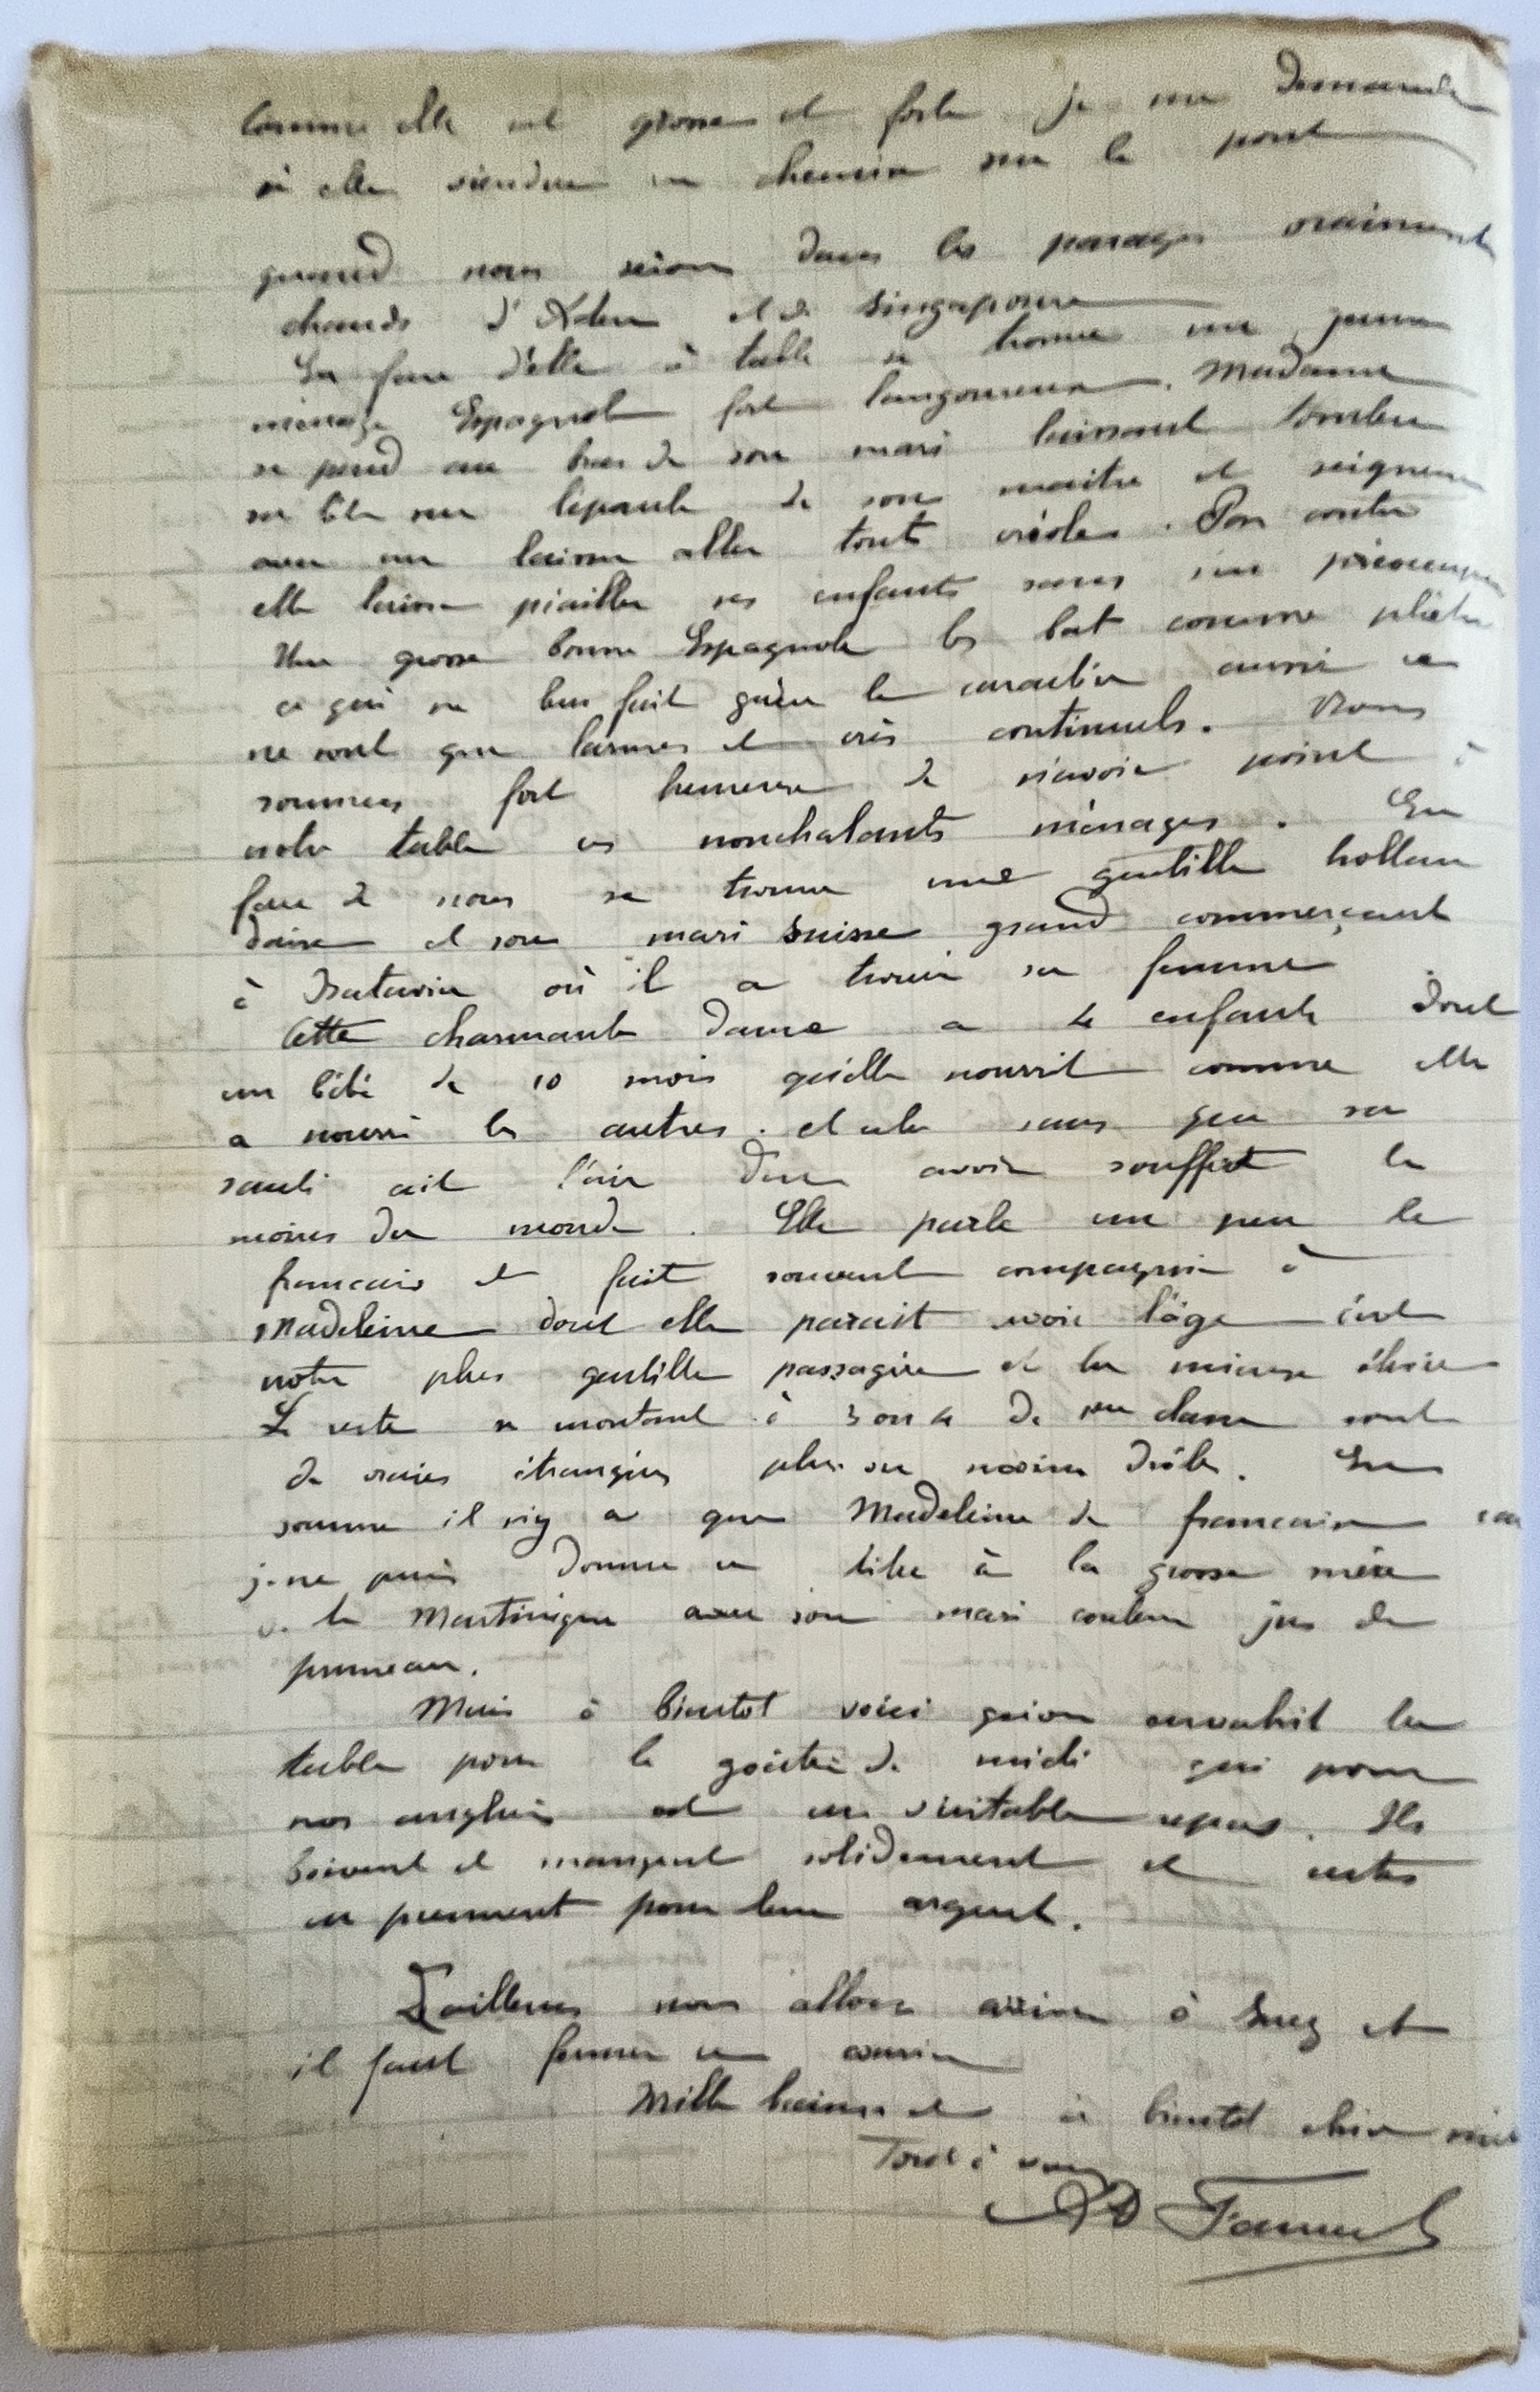 Comme elle est grosse et forte je me demande
si elle viendra en chemise sur le pont
quand nous serons dans les parages vraiment
chauds d'Aden et de Singapoure
En face d'elle à table se trouve un jeune
ménage Espagnol fort langoureux. Madame
se pend au bras de son mari laissant tomber
sa tête sur l'épaule de son maitre et seigneur
avec un laisser aller tout créole. Par contre
elle laisse piailler ses enfants sans s'en préoccuper
Une grosse bonne Espagnole les bat comme plâtre
ce qui ne leur fait guère le caractère aussi ce
ne sont que larmes et cris continuels. Nous
sommes fort heureux de n'avoir point à
notre table ces nonchalants ménages. En
face de nous se trouve une gentille hollan
daise et son mari Suisse grand commerçant
à Batavia où il a trouvé sa femme
Cette charmante dame a 4 enfants dont
un bébé de 10 mois qu'elle nourrit comme elle
a nourri les autres. et cela sans que sa
santé ait l'air d'en avoir souffert le
moins du monde. Elle parle un peu le
francais et fait souvent compagnie à
Madeleine dont elle parait avoir l'âge c'est
notre plus gentille passagère et la mieux élevée
Le reste se montant à 3 ou 4 de 1ère classe sont
de vraies étrangères plus ou moins drôles. En
somme il n'y a que Madeleine de francaise car
je ne puis donner ce titre à la grosse mère
de la Martinique avec son mari couleur jus de
pruneau.
Mais à bientot voici qu'on envahit la
table pour le goûter de midi qui pour
nos anglais est un véritable repas. Ils
boivent et mangent solidement et certes
en prennent pour leur argent.
D'ailleurs nous allons arriver à Suez et
il faut fermer ce courrier
Mille baisers et à bientot chère
Tout à vous